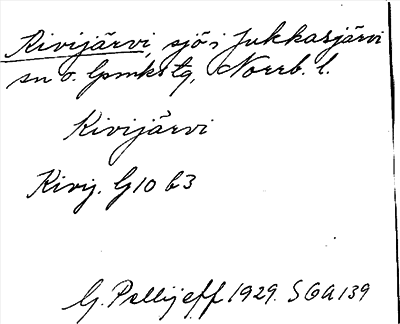 Kivijärvi, sjö i Jukkasjärvi
sn o. lpmks tg, Norrb. l.
Kivijärvi
Kivij. G10 b3
G. Pellijeff 1929. SGA 139